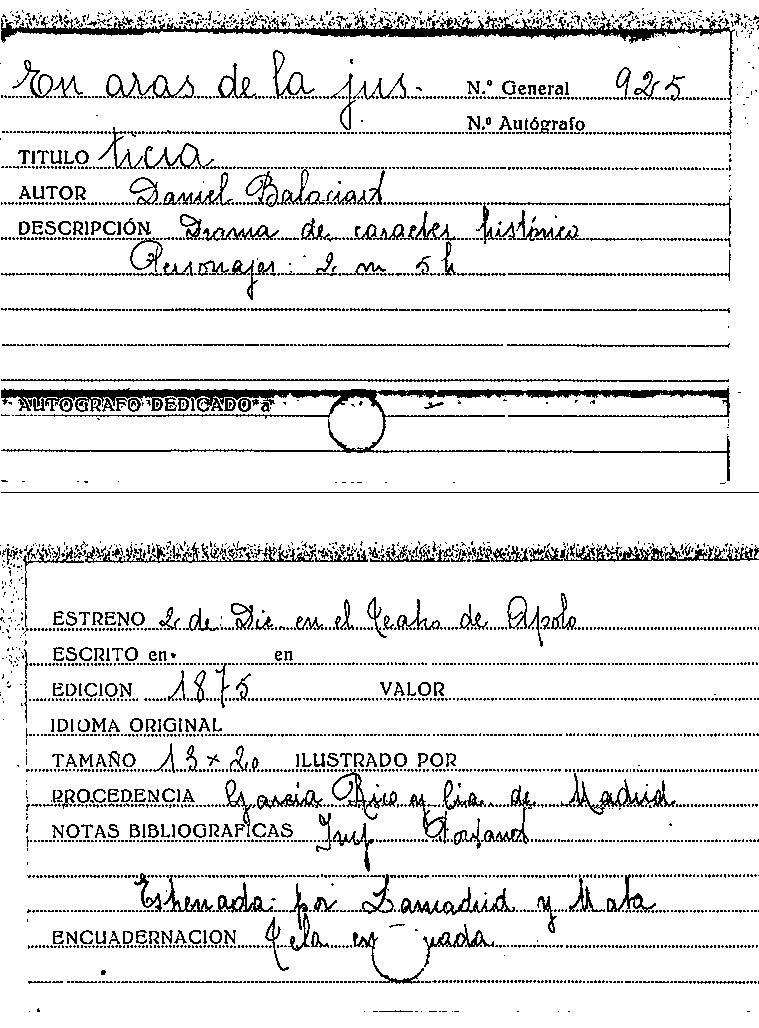 En aras de la jus- N.º General 925
N.º Autógrafo
TITULO ticia
AUTOR Daniel Balaciart
DESCRIPCIÓN Drama de caracter histórico
Personajes: 2 m 5 h
AUTOGRAFO DEDICADO a
ESTRENO 2 de Dic. en el Teatro de Apolo
ESCRITO en en
EDICION 1875 VALOR
IDIOMA ORIGINAL
TAMAÑO 13 × 20 ILUSTRADO POR
PROCEDENCIA García Rico y Cia. de Madrid
NOTAS BIBLIOGRAFICAS Imp
Estrenada por Lamadrid y Mata
ENCUADERNACION Tela